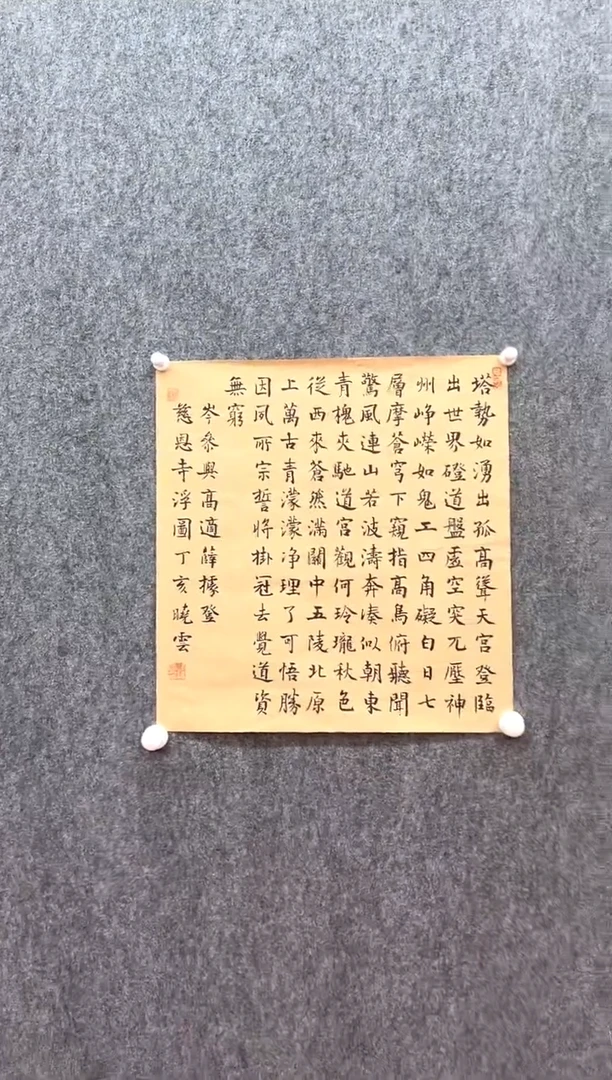 塔勢如湧出孤高聳天宮登臨
出世界磴道盤虛空突兀壓神
州崢嶸如鬼工四角礙白日七
層摩蒼穹下窺指高鳥俯聽聞
驚風連山若波濤奔湊似朝東
青槐夾馳道宮觀何玲瓏秋色
從西來蒼然滿關中五陵北原
上萬古青濛濛净理了可悟勝
因夙所宗誓將掛冠去覺道資
無窮
岑參與高適薛據登
慈恩寺浮圖丁亥曉雲